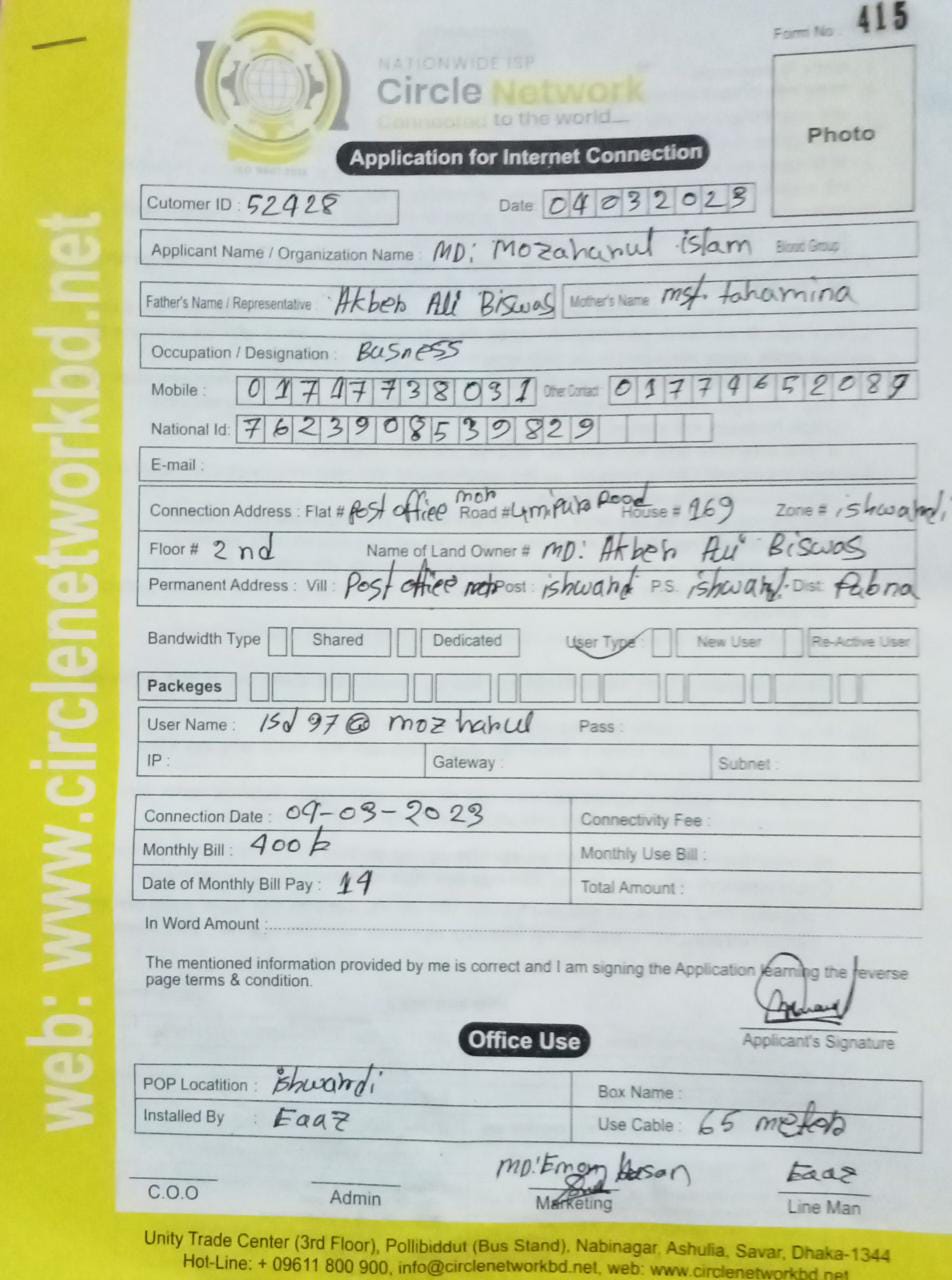 Form No : 415
NATIONWIDE ISP
Circle Network
Connected to the world
Photo
Application for Internet Connection
Cutomer ID : 52428 Date: 04032023
Applicant Name / Organization Name : MD: Mozahanul islam Blood Group
Father's Name / Representative : Akbeh Ali Biswas Mother's Name mst. tahamina
Occupation / Designation : Busness
Mobile : 01747738031 Other Contact 017746520
National Id: 7623908539829
E-mail :
Connection Address : Flat # post office Road # House # 169 Zone # ishwahdi
Floor # 2nd Name of Land Owner # MD: Akbeh Ali Biswas
Permanent Address : Vill : Post office Post : P.S. Dist: Pabna
Bandwidth Type Shared Dedicated User Type : New User Re-Active User
Packeges
User Name : ISd 97@ mozhahul Pass :
IP : Gateway : Subnet :
Connection Date : 04-03-2023 Connectivity Fee :
Monthly Bill : 400 Monthly Use Bill :
Date of Monthly Bill Pay : 14 Total Amount :
In Word Amount :
The mentioned information provided by me is correct and I am signing the Application learning the reverse
page terms & condition.
Applicant's Signature
Office Use
POP Locatition : ishwahdi Box Name :
Installed By : Eaaz Use Cable : 65
MD: Emom hasan Eaaz
C.O.O Admin Marketing Line Man
Unity Trade Center (3rd Floor), Pollibiddut (Bus Stand), Nabinagar, Ashulia, Savar, Dhaka-1344
Hot-Line: + 09611 800 900, info@circlenetworkbd.net, web: www.circlenetworkbd.net
web: www.circlenetworkbd.net